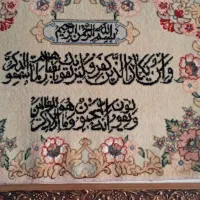 بسم الله الرحمن الرحيم
وان يكاد الذين كفروا ليزلقونك بابصارهم لما سمعوا الذكر
ويقولون انه لمجنون وما هو الا ذكر للعالمين